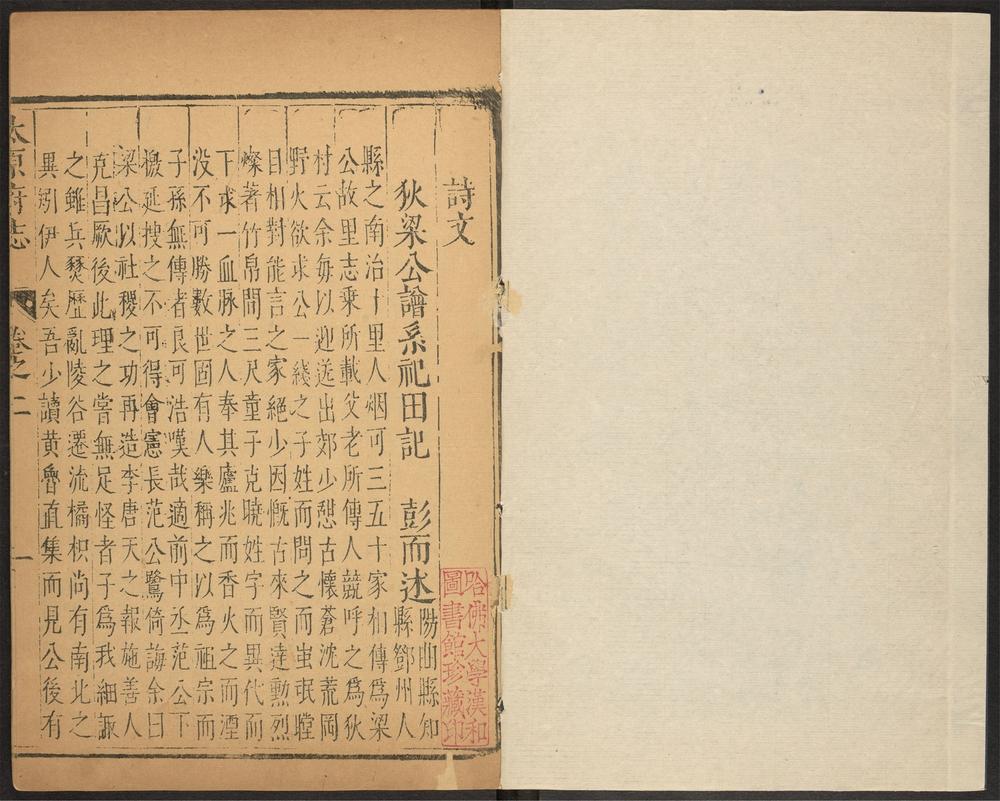 詩文
狄梁公譜系祀田記　彭而述陽曲縣知縣鄧州人
縣之南治十里人烟可三五十家相傳爲梁
公故里志乘所載父老所傳人競呼之爲狄
村云余每以迎送出郊少憇古懷蒼沈荒岡
野火欲求公一綫之子姓而問之而䖝氓瞠
目相對能言之家絶少因慨古來賢達勲烈
燦著竹帛問三尺童子克曉姓字而異代而
下求一血脉之人奉其廬兆而香火之而湮
没不可勝數世固有人樂稱之以爲祖宗而
子孫無傳者良可浩嘆哉適前中丞范公下
檄延搜之不可得會憲長范公鷺倚誨余曰
梁公以社稷之功再造李唐天之報施善人
克昌厥後此理之嘗無足怪者子爲我細諏
之雖兵燹歷亂陵谷遷流橘枳尚有南北之
異矧伊人矣吾少讀黄魯直集而見公後有
太原府志
卷之二
一
哈佛大學漢和
圖書館珍藏印